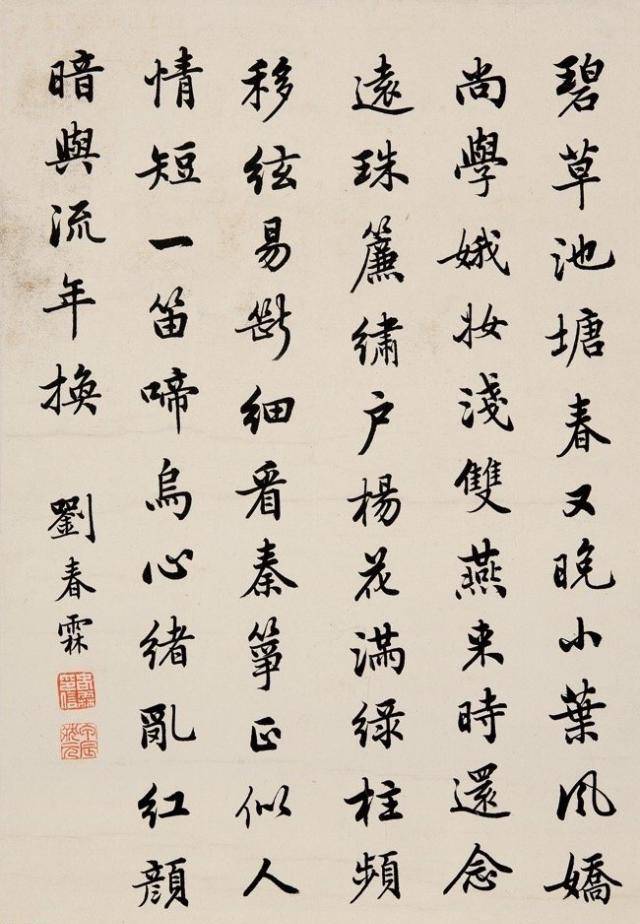 碧草池塘春又晚小葉風嬌
尚學娥妝淺雙燕来時還念
遠珠簾繡户楊花滿緑柱頻
移絃易斷細看秦筝正似人
情短一笛啼烏心緒亂紅顔
暗與流年換
劉春霖